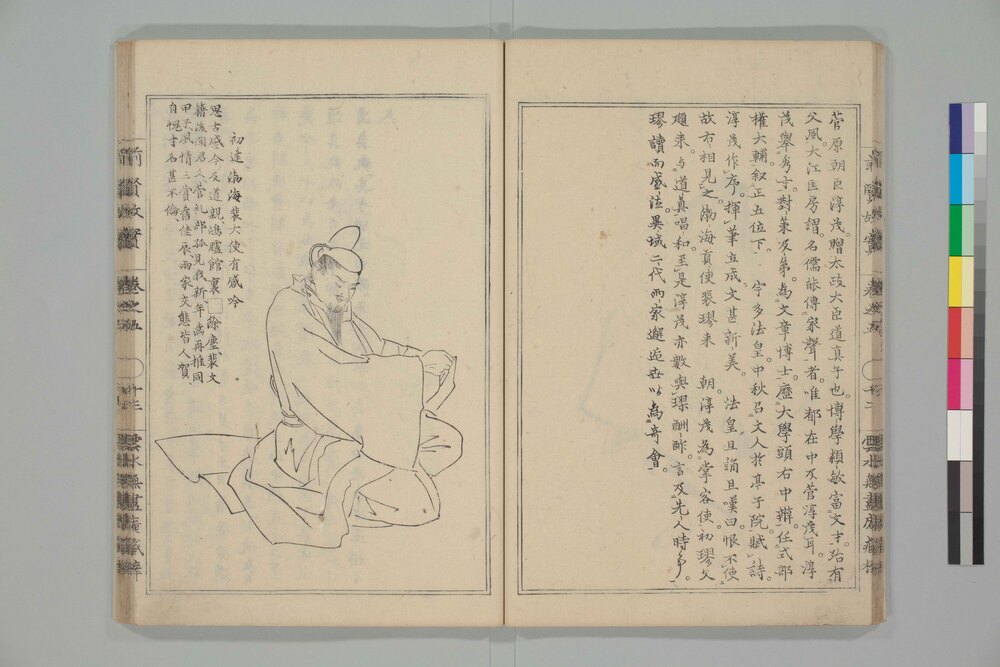 菅原朝臣淳茂贈太政大臣道真子也。博學穎敏富文才。殆有
父風。大江匡房謂。名儒能傳家聲者。唯都在中及菅淳茂耳。淳
茂舉秀才。對策及第。為文章博士。歷大學頭右中辨。任式部
權大輔。敘正五位下。宇多法皇。中秋召文人於亭子院。賦詩。
淳茂作序。揮筆立成。文甚新美。法皇且誦且嘆曰。恨不使
故市相見之。渤海貢使裴璆來朝。淳茂為掌客使。初璆父
頲來。與道真唱和。至是淳茂亦數與璆酬酢。言及先人時事。
璆讀而感泣。異域二代兩家邂逅世以為奇會。
初逢渤海裴大使有感吟
思古感今友道親。鴻臚館裏□餘塵。裴文
籍後聞君久。菅礼部孤見我新。年齒再推同
甲子。風情三賞舊佳辰。兩家文態皆人賀。
自愧才名甚不倫。
前賢故實
卷之五
雲水無盡庵藏梓